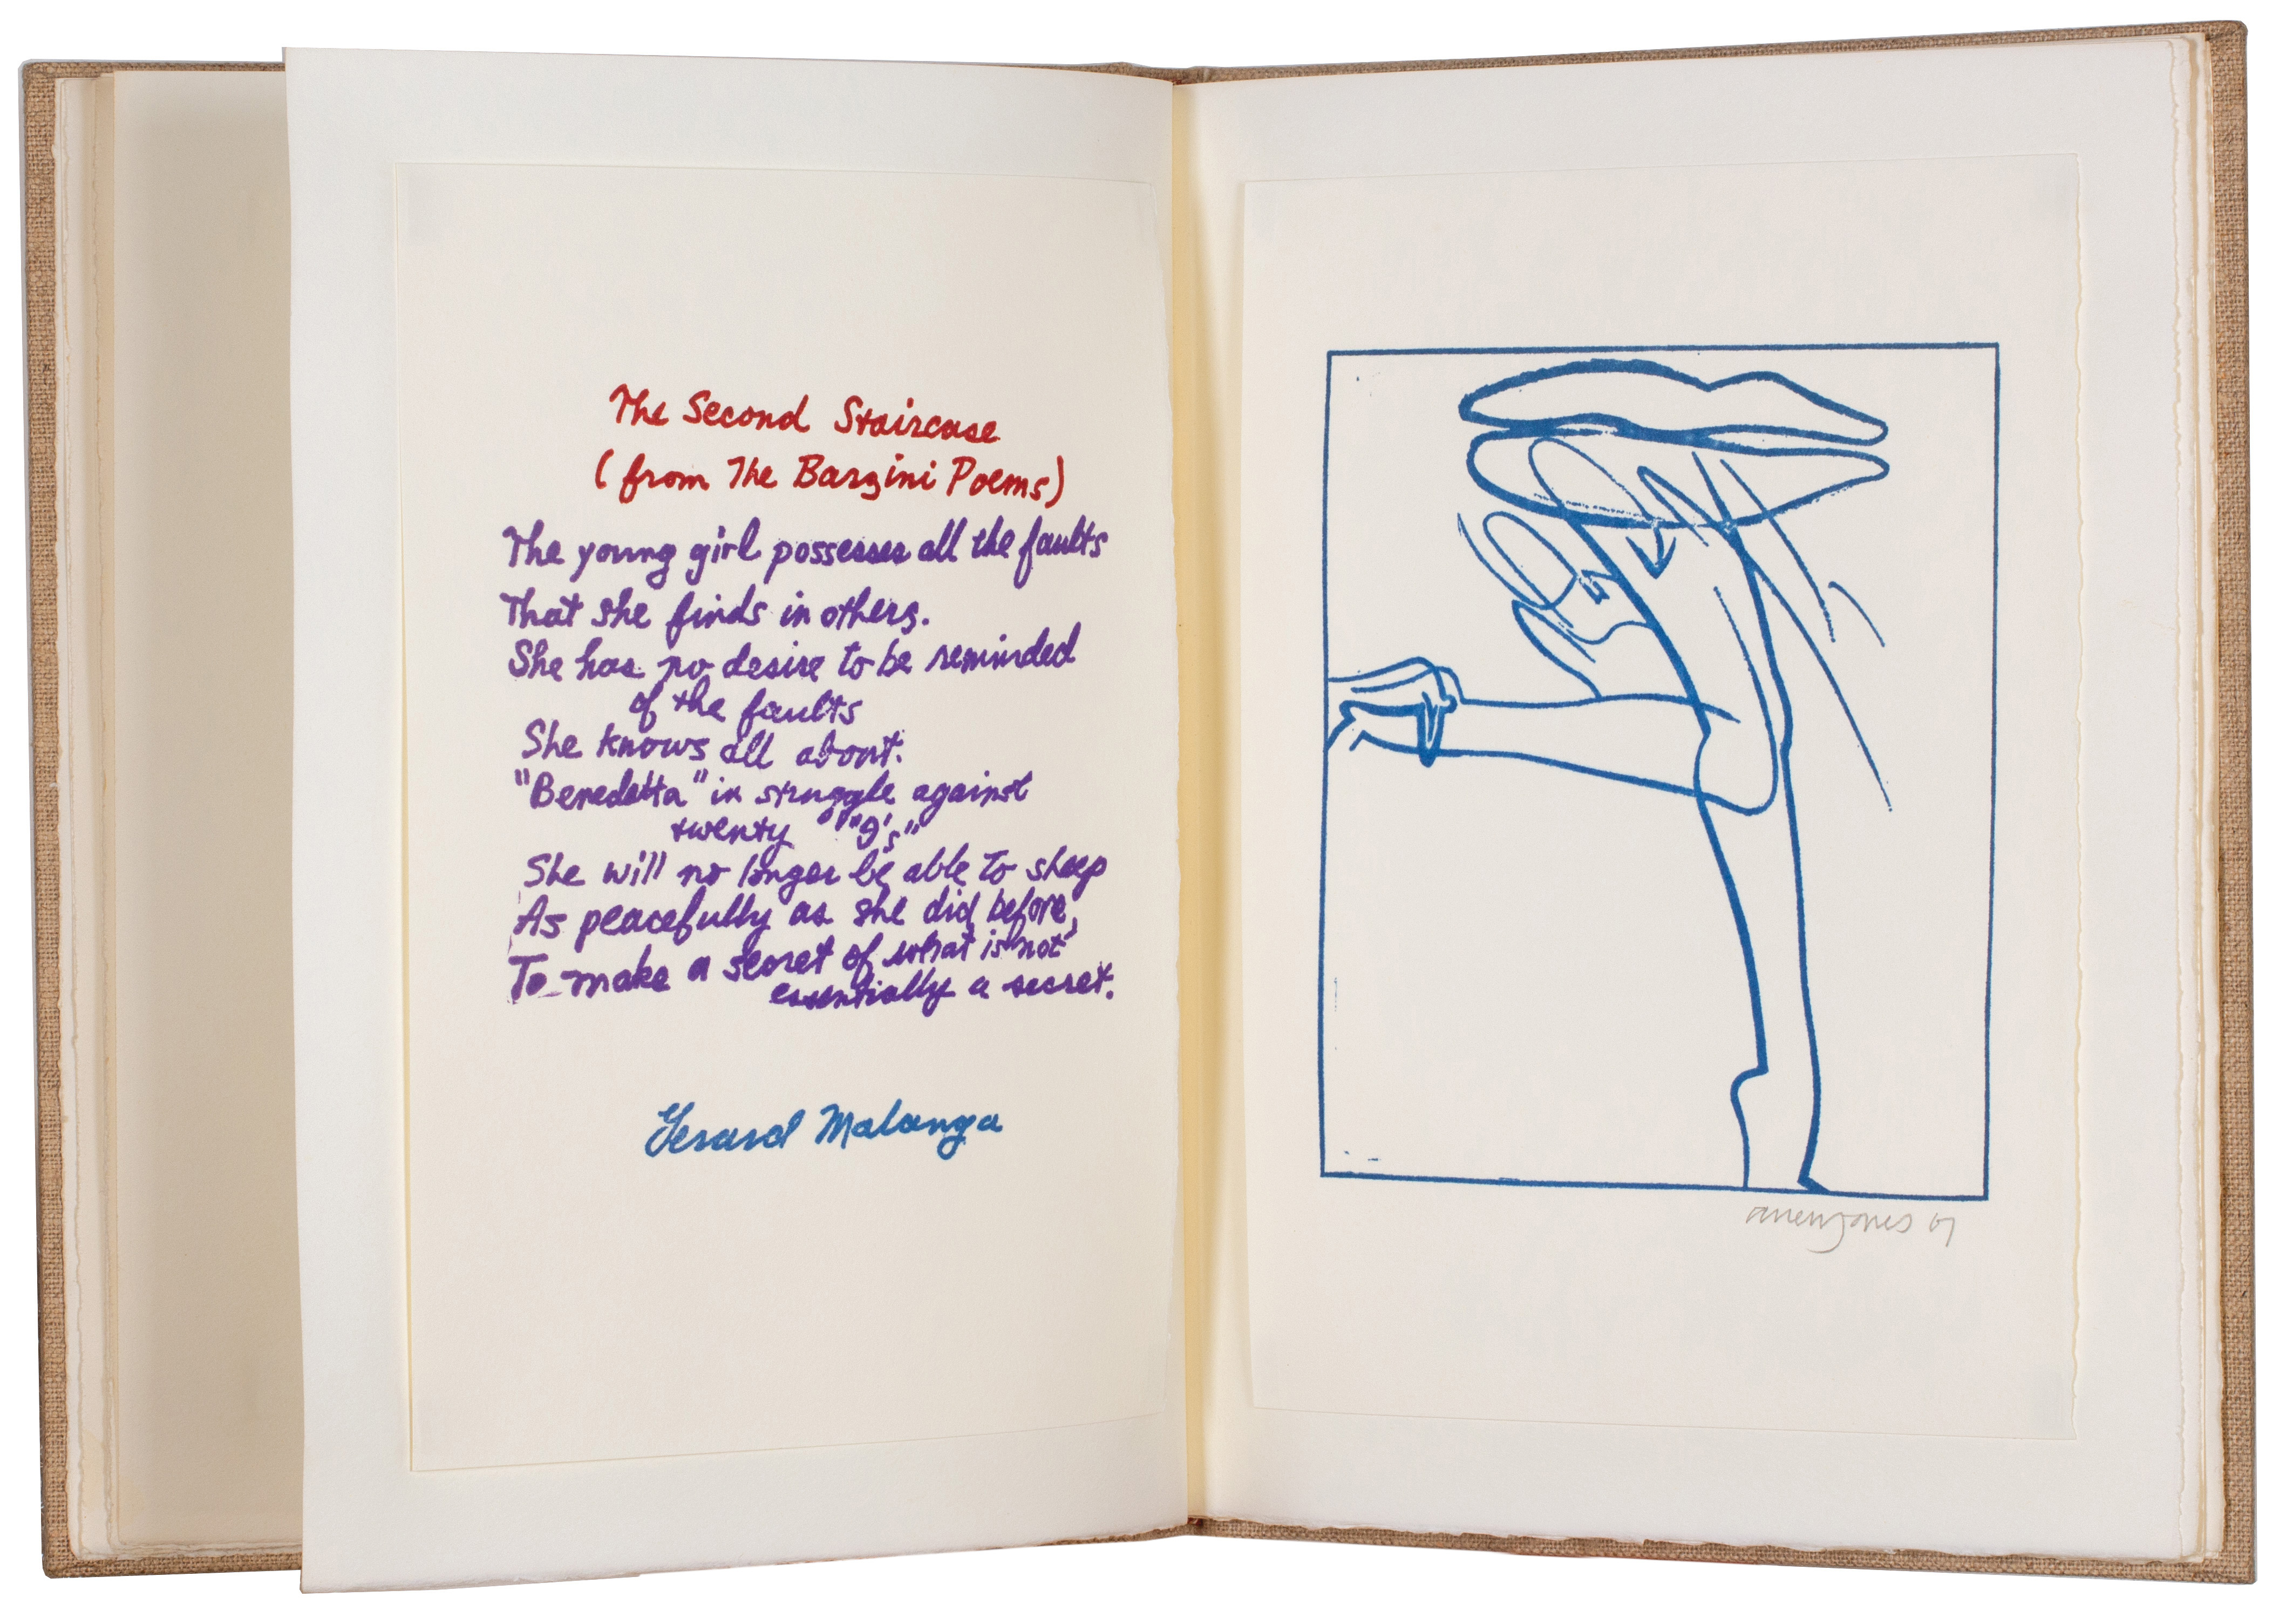 The Second Staircase
(from The Barzini Poems)
The young girl possesses all the faults
That she finds in others.
She has no desire to be reminded
of the faults
She knows all about.
"Benedetta" in struggle against
twenty "9's"
She will no longer be able to sleep
As peacefully as she did before,
To make a secret of what is not
essentially a secret.
Gerard Malanga
allen jones 67